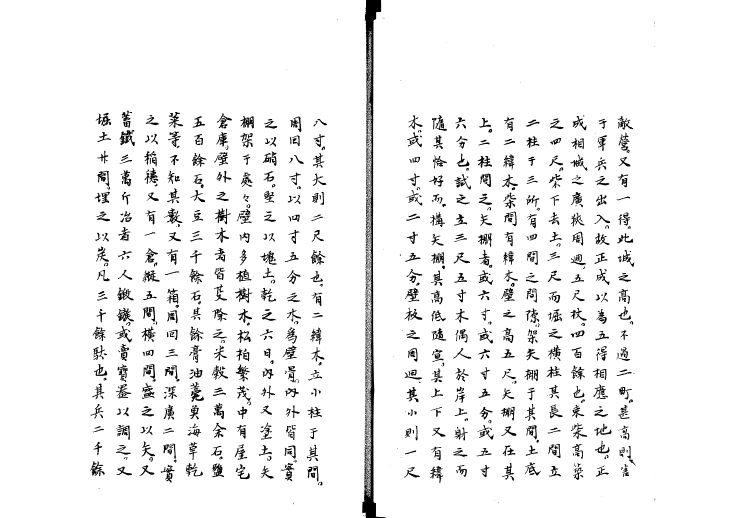 敵營。又有一得。此城之高也。不過二町。甚高則害
于軍兵之出入。故正成以為五得相應之地也。正
成相城之廣狹周廻。五尺杖。四百餘也。束柴高築
之四尺。柴下去土。三尺而堀之橫柱其長二間立
二柱于三所。有四間之間隙。架矢棚于其間。土底
有二緯木。柴間有緯木。壁之高五尺。矢棚又在其
上。二柱間之。矢棚者。或六寸。或六寸五分。或五寸
六分也。試之立三尺五寸木偶人於岸上。射之而
隨其恰好而。構矢棚。其高低隨宜。其上下又有緯
木。或四寸。或二寸五分。壁板之周廻。其小則一尺
八寸。其大則二尺餘也。有二緯木。立小柱于其間。
周囙八寸。以四寸五分之木。為壁骨。內外皆同。實
之以硝石。堅之以塊土。乾之六日。內外又塗土。矢
棚架于處々。壁內多植樹木。松柏繁茂。中有屋宅
倉庫。壁外之樹木者皆芟除之。米穀三萬余石。鹽
五百餘石。大豆三千餘石。其餘膏油薨臾海草乾
菜等不知其數。又有一箱。周囙三間。深廣二間。實
之以稻穗。又有一倉。縱五間。橫四間。盛之以矢。又
蓄鐵三萬斤冶者六人鍛鏃。或賣寶器以調之。又
堀土廿間。埋之以炭。凡三千餘駄也。其兵二千餘